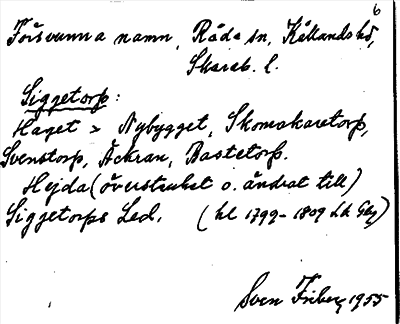 6
Försvunna namn, Råda sn, Kållands hd,
Skarab. l.
Siggetorp:
Haget > Nybygget, Skomakaretorp,
Svenstorp, Åckran, Bastetorp.
Hejda (överstruket o. ändrat till)
Siggetorps Led. (hl 1799-1809 Lk Gbg)
Sven Friberg 1955